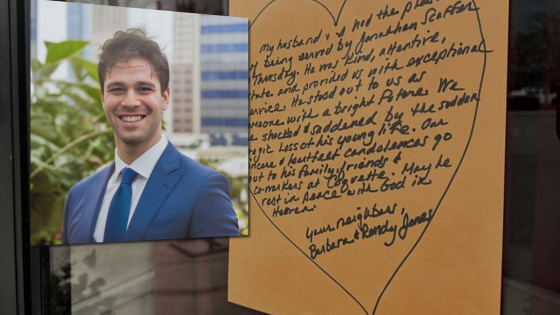 My husband & I had the
being served by Jonathan Scaffer
Thursday. He was kind, attentive,
and provided us with exceptional
He stood out to us as
with a bright future. We
shocked & saddened by the sudden
loss of his young life. Our
& heartfelt condolences go
out to his family, friends &
co-workers at Coquette. May he
rest in peace with God in
Heaven.
Your neighbors,
Barbara & Randy Jones